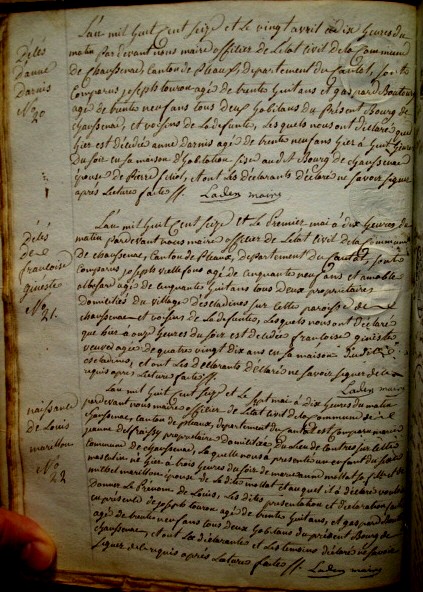 Décès
d'anne
Darnis
No. 20
L'an mil huit cent seize et le vingt avril à dix heures du
matin par devant nous maire officier de l'état civil de la commune
de chaussenac, canton de Pleaux, département du Cantal, sont
comparus joseph touron agé de trente huit ans et gaspard Bouteira
agé de trente neuf ans tous deux habitans du présent Bourg de
chaussenac, et voisins de la défunte, lesquels nous ont déclaré que
hier est décédée anne darnis agée de trente neuf ans hier à huit heures
du soir en sa maison d'habitation sise audit Bourg de chaussenac
épouse de Pierre et ont les déclarants déclaré ne savoir signer
après lecture faite ff. Laden maire
Décès
de
francoise
gineste
No. 21.
L'an mil huit cent seize et le Premier mai à dix heures du
matin pardevant nous maire officier de l'état civil de la commune
de chaussenac, canton de Pleaux, département du Cantal, sont
comparus joseph vellefons agé de cinquante neuf ans et amable
agé de cinquante huit ans tous deux propriétaires
domiciliés du village d'escladines sur cette paroisse de
chaussenac et voisins de la défunte, lesquels nous ont déclaré
que hier à onze heures du soir est décédée françoise ginieste
veuve agée de quatre vingt dix ans en sa maison
escladines, et ont les déclarants déclaré ne savoir signer de ce
requis après lecture faite ff. Laden maire
naissance
de Louis
marillou
No. 22
L'an mil huit cent seize et le sept mai à dix heures du matin
pardevant nous maire officier de l'état civil de la commune de
chaussenac, canton de pleaux, département du cantal est comparu marie
jeanne delfraissy propriétaire domiciliée du lieu de contres sur cette
commune de chaussenac, laquelle nous a présenté un enfant du sexe
masculin né hier à trois heures du soir de marianne mollat sa fille et de
michel marillou, épouse de la dite mollat et auquel il a déclaré vouloir
donner le Prénom de Louis, les dites présentation et déclaration faites
en présence de joseph touron agé de trente huit ans, et gaspard Bouteira
agé de trente neuf ans tous deux habitans du présent Bourg de
chaussenac, et ont les déclarantes et les temoins déclaré ne savoir
signer de ce requis après lecture faite ff. Laden maire